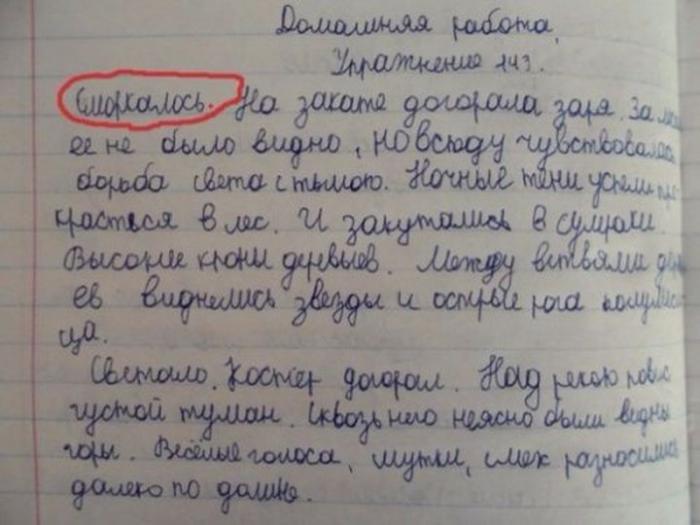 Домашняя работа.
Упражнение 143.
Сморкалось. На закате догорала заря. За
ее не было видно, но всюду чувствовалась
борьба света с тьмою. Ночные тени успели про
красться в лес. И закутались в сумраки.
Высокие кроны деревьев. Между ветвями дер
ев виднелись звезды и острые рога полумеся
ца.
Светало. Костер догорал. Над рекою повис
густой туман. Сквозь него неясно были видны
горы. Весёлые голоса, шутки, смех разносились
далеко по долине.